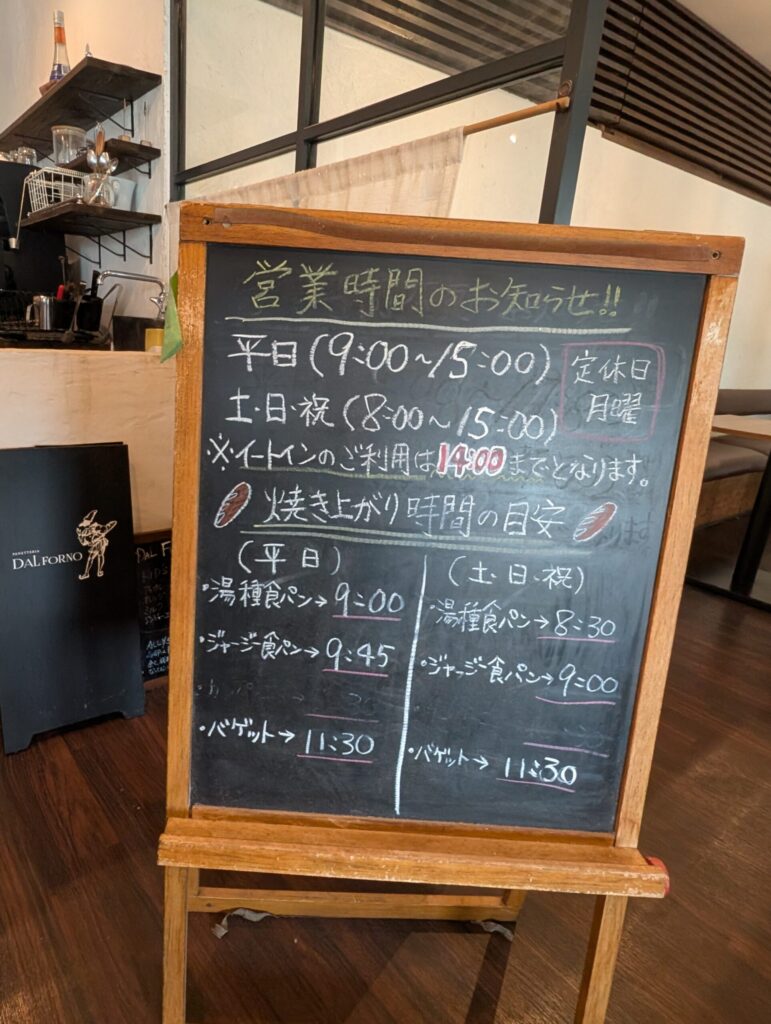 営業時間のお知らせ!!
平日(9:00~15:00)
定休日
月曜
土・日・祝(8:00~15:00)
※イートインのご利用は14:00までとなります。
焼き上がり時間の目安
(平日)
・湯種食パン→9:00
・ジャージー食パン→9:45
・バゲット→11:30
(土・日・祝)
・湯種食パン→8:30
・ジャージー食パン→9:00
・バゲット→11:30
PANETTERIA
DAL FORNO
DAL F